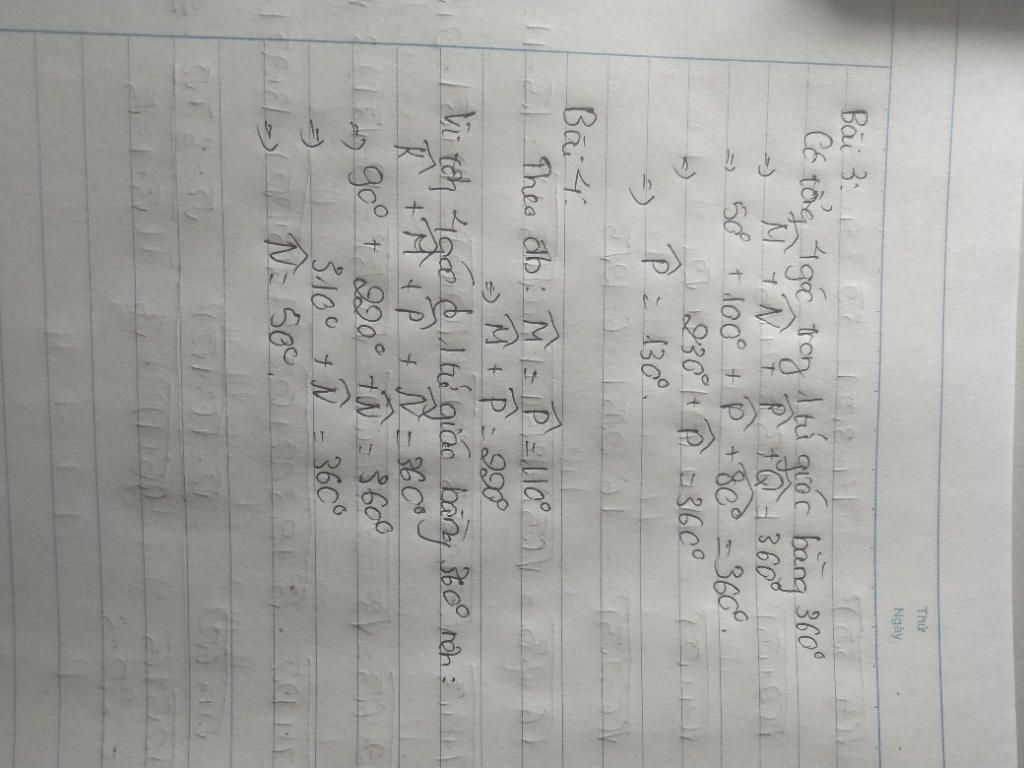 Thứ
Ngày
Bài 3:
Có tổng 4 góc trong 1 tứ giác bằng 360°
=> M̂ + N̂ + P̂ + Q̂ = 360°
=> 50° + 100° + P̂ + 80° = 360°.
=> 230° + P̂ = 360°
=> P̂ = 130°.
Bài 4:
Theo đb: M̂ = P̂ = 110°
=> M̂ + P̂ = 220°
Vì 4 góc 1 tứ giác bằng 360° nên:
K̂ + M̂ + P̂ + N̂ = 360°
=> 90° + 220° + N̂ = 360°
=> 310° + N̂ = 360°
=> N̂ = 50°.